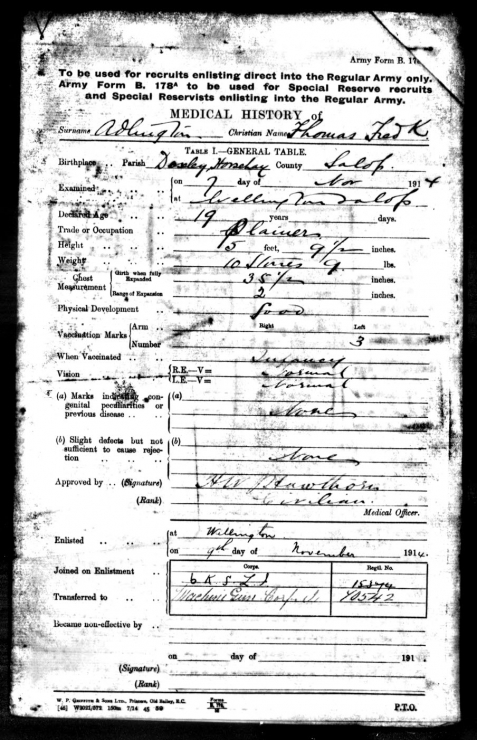 Army Form B. 178
To be used for recruits enlisting direct into the Regular Army only.
Army Form B. 178A to be used for Special Reserve recruits
and Special Reservists enlisting into the Regular Army.
MEDICAL HISTORY of
Surname Adlington Christian Name Thomas Fred K
TABLE I.—GENERAL TABLE.
Birthplace .. Parish Dawley Horsehay County Salop.
Examined .. .. .. on 7 day of Nov 1914
at Wellington Salop
Declared Age .. .. 19 years days.
Trade or Occupation .. Plainer
Height .. .. .. 5 feet, 9 1/2 inches.
Weight .. .. .. 10 Stones 9 lbs.
Chest Measurement Girth when fully Expanded 35 1/2 inches.
Range of Expansion 2 inches.
Physical Development .. .. Good
Right Left
Vaccination Marks Arm ..
Number 3
When Vaccinated .. .. Infancy
Vision .. .. .. R.E.—V= Normal
L.E.—V= Normal
(a) Marks indicating con- (a)
genital peculiarities or
previous disease .. .. None
(b) Slight defects but not (b)
sufficient to cause rejec-
tion .. .. .. None
Approved by .. (Signature) H W Hawthorn
(Rank) Civilian.
Medical Officer.
Enlisted .. .. .. at Wellington
on 9th day of November 1914.
Corps. Regtl. No.
Joined on Enlistment .. 6 K S L I
Transferred to .. .. Machine Gun Corps 70542
Became non-effective by ..
on day of 191
(Signature)
(Rank)
W. P. GRIFFITH & SONS LTD., Printers, Old Bailey, E.C.
Forms B. 178
P.T.O.